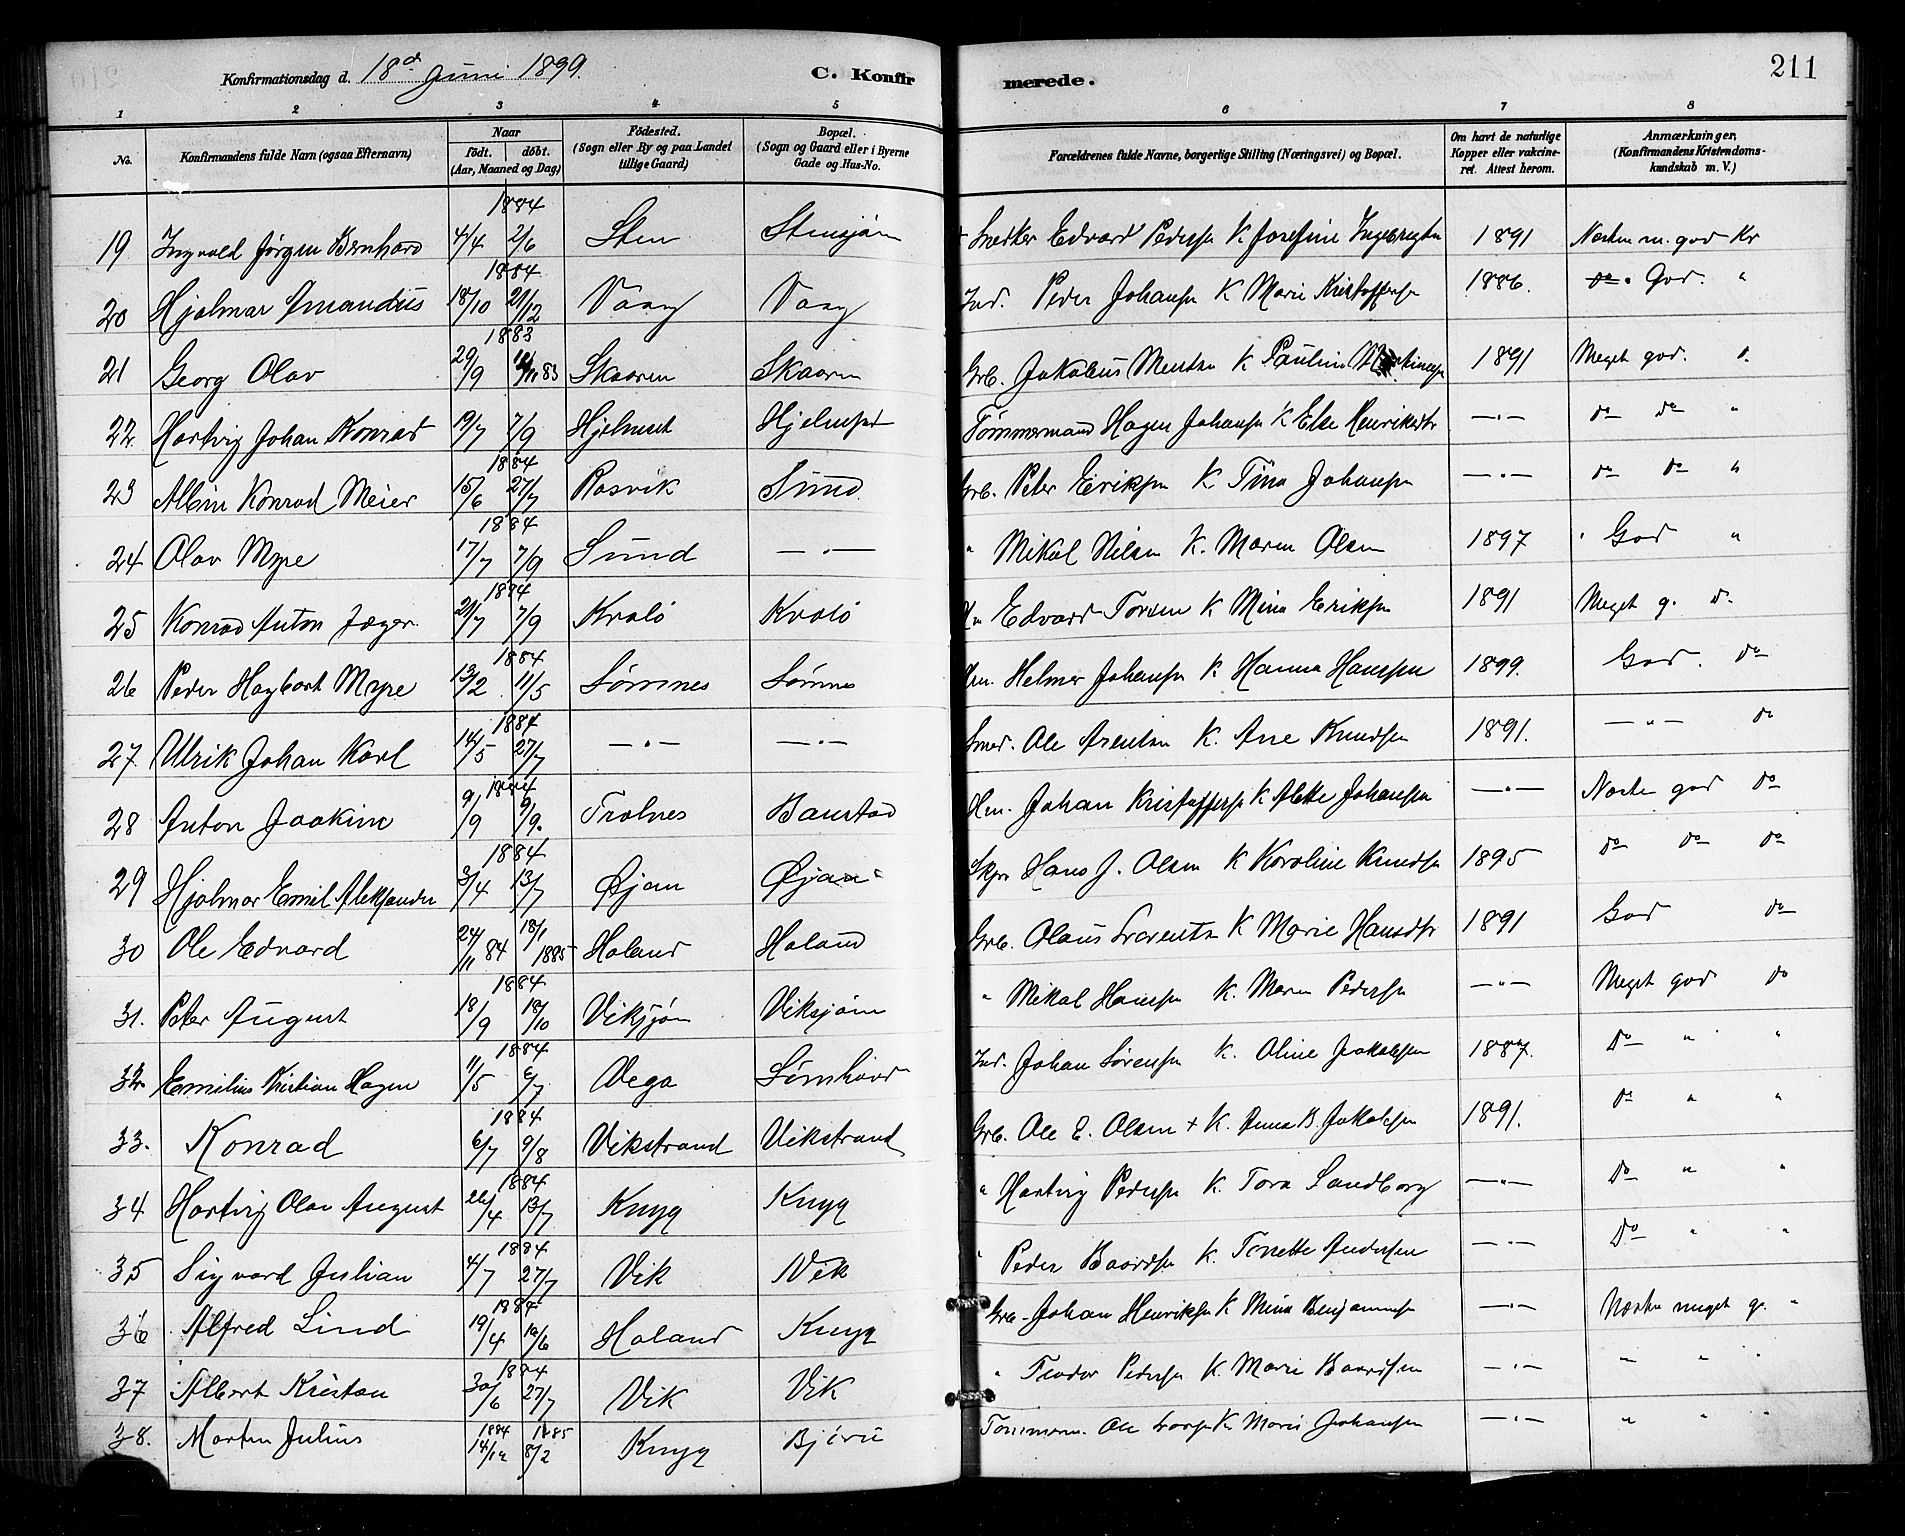 Konfirmationsdag d. 18d Juni 1899. C. Konfirmerede. 211
1 2 3 4 5 6 7 8
No. Konfirmandens fulde Navn (ogsaa Efternavn) Naar født. døbt. (Aar, Maaned og Dag) Fødested. (Sogn eller By og paa Landet tillige Gaard) Bopæl. (Sogn og Gaard eller i Byerne Gade og Hus-No. Forældrenes fulde Navne, borgerlige Stilling (Næringsvei) og Bopæl. Om havt de naturlige Kopper eller vakcineret. Attest herom. Anmærkninger. (Konfirmandens Kristendomskundskab m. V.)
1884
19 Ingvald Jørgen Bernhard 4/4 2/6 Sten Stensjøen Snedker Edvard Peders. K. Josefine Ingebrigts. 1891 Næsten m. god Kr
1884
20 Hjalmar Amandus 18/10 21/12 Vaag Vaag Ind. Peder Johansen K Marie Kristoffersen 1886. do. God. "
1883
21 Georg Olav 29/9 /11 83 Skaaren Skaaren Grb. Jakobus Mentsn K Pauline 1891 Meget god. d.
22. Hartvig Johan Konrad 19/7 7/9 Hjelmset Hjelmset Tømmermand Hagen Johansen K Else Henriksdtr —"— do do "
1884
23 Albin Konrad Meier 15/6 27/7 Rosvik Sund. Grb. Peter Eriksen K Tina Johansen —"— do do "
1884
24 Olav Mype 17/7 7/9 Sund —"— " Mikal Nilsen K. Maren Olsen 1897 God "
1884
25 Konrad Anton Jæger. 21/7 7/9 Kvalø Kvalø Hm Edvard Torsen K Mina Eriksen 1891 Meget g. d.
1884
26 Peder Hagbart Mype 13/2 11/5 Sømnes Sømnes Hm. Helmer Johansen K Hanna Hanssen 1899. God. do
1884
27. Ulrik Johan Karl 14/5 27/7 —"— —"— Smed. Ole Arentsn K. Ane Knudsen 1891. —"— do
1884
28 Anton Joakim 9/9 9/9. Trælnes Baustad Hm. Johan Kristoffersen K. Alette Johansen —"— Næsten god do
1884
29 Hjalmar Emil Aleksander 3/4 13/7 Øjan Øjan Skpr Hans J. Olsen K Karoline Knudsen 1895 do do do
30 Ole Edvard 24/11 84 18/1 1885 Holand Holand Grb. Olaus Lorentsn K Marie Hansdtr 1891 God do
1884
31. Peter August 18/9 19/10 Viksjøn Viksjøen " Mikal Hansen K. Maren Pedersen —"— Meget god do
1884
32. Emilius Kristian Hagen 11/5 6/7 Vega Sømhovd Ind. Johan Sørensen K. Oline Jakobsen 1887. Do " "
1884
33. Konrad 6/7 9/8 Vikstrand Vikstrand Grb. Ole E. Olsen + K. Anna B. Jakobsen 1891. do " "
1884
34 Hartvig Olav August 26/4 13/7 Knyg Knyg " Hartvig Pedersen K. Tora Sandberg —"— Do " "
1884
35 Sigvard Julian 4/7 27/7 Vik Vik " Peder Baardsen K. Tonette Andersen —"— Do " "
1884
36 Alfred Lind 19/4 10/6 Holand Knyg Grb. Johan Henriksen K. Mina Benjaminsen —"— Næsten meget g. "
1884
37 Albert Kristan 30/6 27/7 Vik Vik " Teodor Pedersen K. Marie Baardsen —"— " " "
38. Morten Julius 1884 14/12 1885 8/2 Knyg Bjøru Tømmerm. Ole Larsen K. Marie Johansen —"— " " "